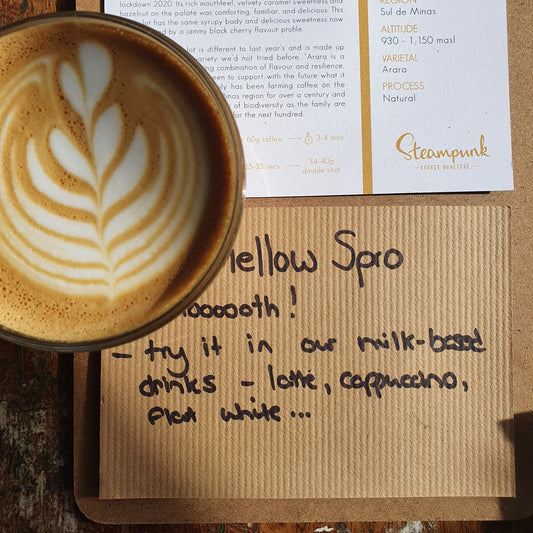 lockdown 2020. Its rich mouthfeel, velvety caramel sweetness and
hazelnut on the palate was comforting, familiar, and delicious. This
lot has the same syrupy body and delicious sweetness now
by a jammy black cherry flavour profile.
lot is different to last year's and is made up
variety we'd not tried before. 'Arara is a
combination of flavour and resilience.
to support with the future what it
has been farming coffee on the
Minas region for over a century and
of biodiversity as the family are
for the next hundred.
60g coffee 3-4 mins
25-35 secs 34-40g
double shot
REGION
Sul de Minas
ALTITUDE
930 - 1,150 masl
VARIETAL
Arara
PROCESS
Natural
Steampunk
COFFEE ROASTERS
Mellow Spro
oooooth!
- try it in our milk-based
drinks - latté, cappuccino,
flat white...